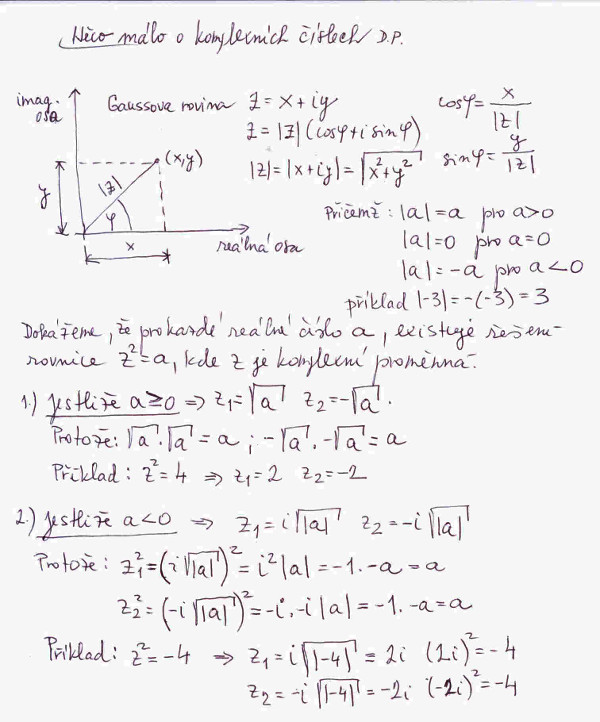 Něco málo o komplexních číslech D.P.
imag. osa
Gaussova rovina z = x + iy
cosφ = x/|z|
z = |z| (cosφ + i sinφ)
|z| = |x + iy| = √(x² + y²)
sinφ = y/|z|
(x,y)
|z|
y
φ
x
reálná osa
Přičemž: |a| = a pro a > 0
|a| = 0 pro a = 0
|a| = -a pro a < 0
příklad |-3| = -(-3) = 3
Dokážeme, že pro každé reálné číslo a, existuje řešení
rovnice z² = a, kde z je komplexní proměnná.
1.) Jestliže a ≥ 0 ⇒ z₁ = √a z₂ = -√a.
Protože: √a . √a = a ; -√a . -√a = a
Příklad: z² = 4 ⇒ z₁ = 2 z₂ = -2
2.) Jestliže a < 0 ⇒ z₁ = i√|a| z₂ = -i√|a|
Protože: z₁² = (i√|a|)² = i²|a| = -1. -a = a
z₂² = (-i√|a|)² = -i. -i|a| = -1. -a = a
Příklad: z² = -4 ⇒ z₁ = i√|-4| = 2i (2i)² = -4
z₂ = -i√|-4| = -2i (-2i)² = -4